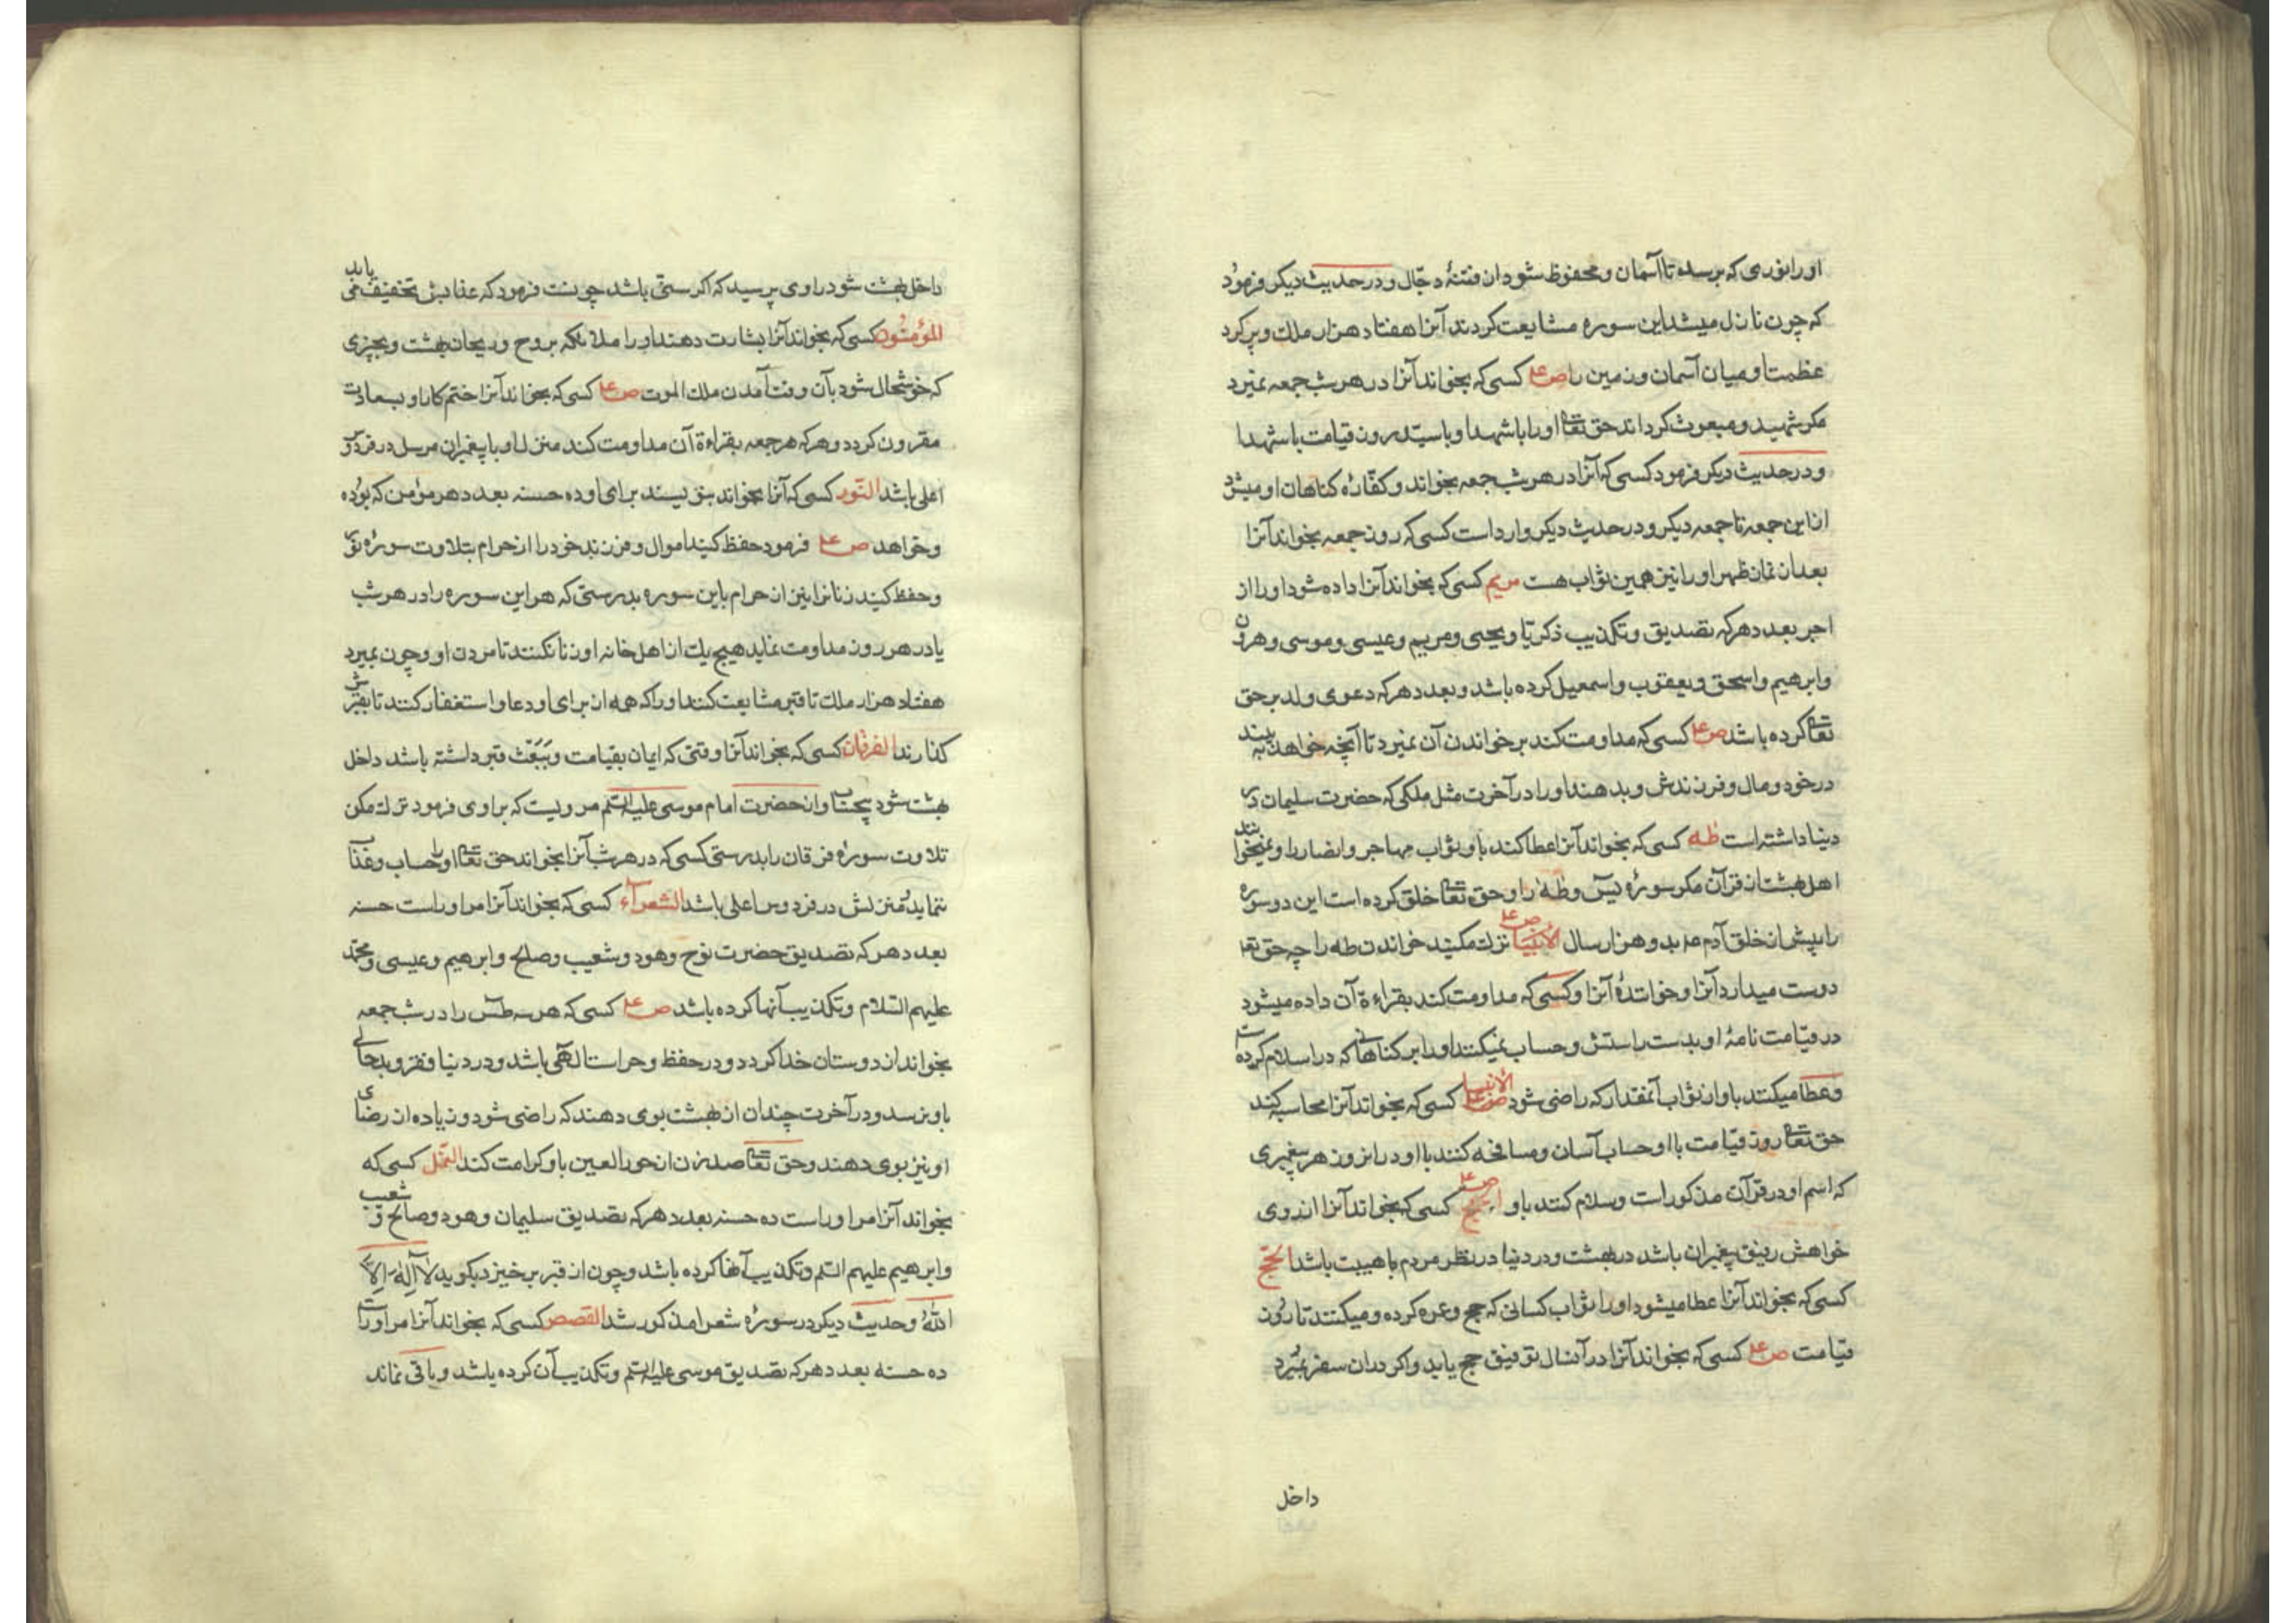 او را نوری که برسد تا آسمان و محفوظ شود از فتنهٔ دجّال و در حدیث دیکر فرمود
که چون نازل میشد این سوره مشایعت کردند آنرا هفتاد هزار ملك و پر کرد
عظمت او میان آسمان و زمین را ص ع کسی که بخواند آنرا در هر شب جمعه نمیرد
مکر شهید و مبعوث کرداند حق تعا او را با شهدا و باستد روز قیامت با شهدا
و در حدیث دیکر فرمود کسی که آنرا در هر شب جمعه بخواند و کفّاره کناهان او میشود
از این جمعه تا جمعه دیکر و در حدیث دیکر وارد است کسی که روز جمعه بخواند آنرا
بعد از نماز ظهر او را نیز همین ثواب هست مریم کسی که بخواند آنرا داده شود او را از
اجر بعدد هر که تصدیق و تکذیب ذکریّا و یحیی و مریم و عیسی و موسی و هرون
و ابرهیم و اسحق و یعقوب و اسمعیل کرده باشد و بعدد هر که دعوی ولد بر حق
تعا کرده باشد ص ع کسی که مداومت کند بر خواندن آن نمیرد تا آنچه خواهد به بیند
در خود و مال و فرزندش و بدهند او را در آخرت مثل ملکی که حضرت سلیمان در
دنیا داشته است طه کسی که بخواند آنرا عطا کند باو ثواب مهاجر و انصار را و نمیخوانند
اهل بهشت از قرآن مکر سورهٔ یس و طه را و حق تعا خلق کرده است این دو سوره
را پیش از خلق آدم بدو هزار سال الأنبیا ص ع ترك مکنید خواندن طه را چه حق تعا
دوست میدارد آنرا و خوانندهٔ آنرا و کسی که مداومت کند بقراءة آن داده میشود
در قیامت نامهٔ او بدست راستش و حساب نمیکنند او را بر کناهانی که در اسلام کرده است
و عطا میکنند باو از ثواب آنمقدار که راضی شود الأنبیا ص ع کسی که بخواند آنرا محاسبه کند
حق تعا روز قیامت با او حساب آسان و مسافحه کنند با او در انروز هر پیغمبری
که اسم او در قرآن مذکور است و سلام کنند باو ص ع کسی که بخواند آنرا از روی
خواهش رفیق پیغمبران باشد در بهشت و در دنیا در نظر مردم با هیبت باشد الحجّ
کسی که بخواند آنرا عطا میشود او را ثواب کسانی که حج و عمره کرده و میکنند تا روز
قیامت ص ع کسی که بخواند آنرا در آنسال توفیق حج یابد و اکر در ان سفر بمیرد
داخل
داخل بهشت شود راوی پرسید که اکر سنّی باشد چونست فرمود که عذابش تخفیف می یابد
المؤمنُون کسی که بخواند آنرا بشارت دهند او را ملائکه بروح و ریحان بهشت و بچیزی
که خوشحال شود بآن وقت آمدن ملك الموت ص ع کسی که بخواند آنرا ختم کار او بسعادت
مقرون کردد و هر که هر جمعه بقراءة آن مداومت کند منزل او با پیغمبران مرسل در فردوس
اعلی باشد النّور کسی که آنرا بخواند بنویسند برای او ده حسنه بعدد هر مؤمن که بوده
و خواهد ص ع فرمود حفظ کنید اموال و فرزند خود را از حرام بتلاوت سورهٔ نور
و حفظ کنید زنانرا نیز از حرام باین سوره بدرستی که هر این سوره را در هر شب
یا در هر روز مداومت نماید هیچ یك از اهل خانه او زنا نکنند تا مردن او و چون بمیرد
هفتاد هزار ملك تا قبر مشایعت کنند او را که همه از برای او دعا و استغفار کنند تا بقبرش
کذارند الفرقان کسی که بخواند آنرا وقتی که ایمان بقیامت و بَبَعْث قبر داشته باشد داخل
بهشت شود بیحساب و از حضرت امام موسی علیه السّلم مرویست که براوی فرمود ترك مکن
تلاوت سورهٔ فرقان را بدرستی کسی که در هر شب آنرا بخواند حق تعا او را حساب و عذاب
ننماید و منزلش در فردوس اعلی باشد الشعرآء کسی که بخواند آنرا مر او راست حسنه
بعدد هر که تصدیق حضرت نوح و هود و شعیب و صالح و ابرهیم و عیسی و محمّد
علیهم السّلام و تکذیب آنها کرده باشد ص ع کسی که هر سه طس را در شب جمعه
بخواند از دوستان خدا کردد و در حفظ و حراست الهی باشد و در دنیا و فقر و بدحالی
باو نرسد و در آخرت چندان از بهشت بوی دهند که راضی شود و زیاده از رضای
او نیز بوی دهند و حق تعا صد زن از حور العین باو کرامت کند النّمل کسی که
بخواند آنرا مر او راست ده حسنه بعدد هر که تصدیق سلیمان و هود و صالح و شعیب
و ابرهیم علیهم السّلم و تکذیب آنها کرده باشد و چون از قبر بر خیزد بکوید لآ اِلٰهَ اِلاَّ
اللّٰهُ و حدیث دیکر در سورهٔ شعرا مذکور شد القصص کسی که بخواند آنرا مر او راست
ده حسنه بعدد هر که تصدیق موسی علیه السّلم و تکذیب آن کرده باشد و باقی نماند